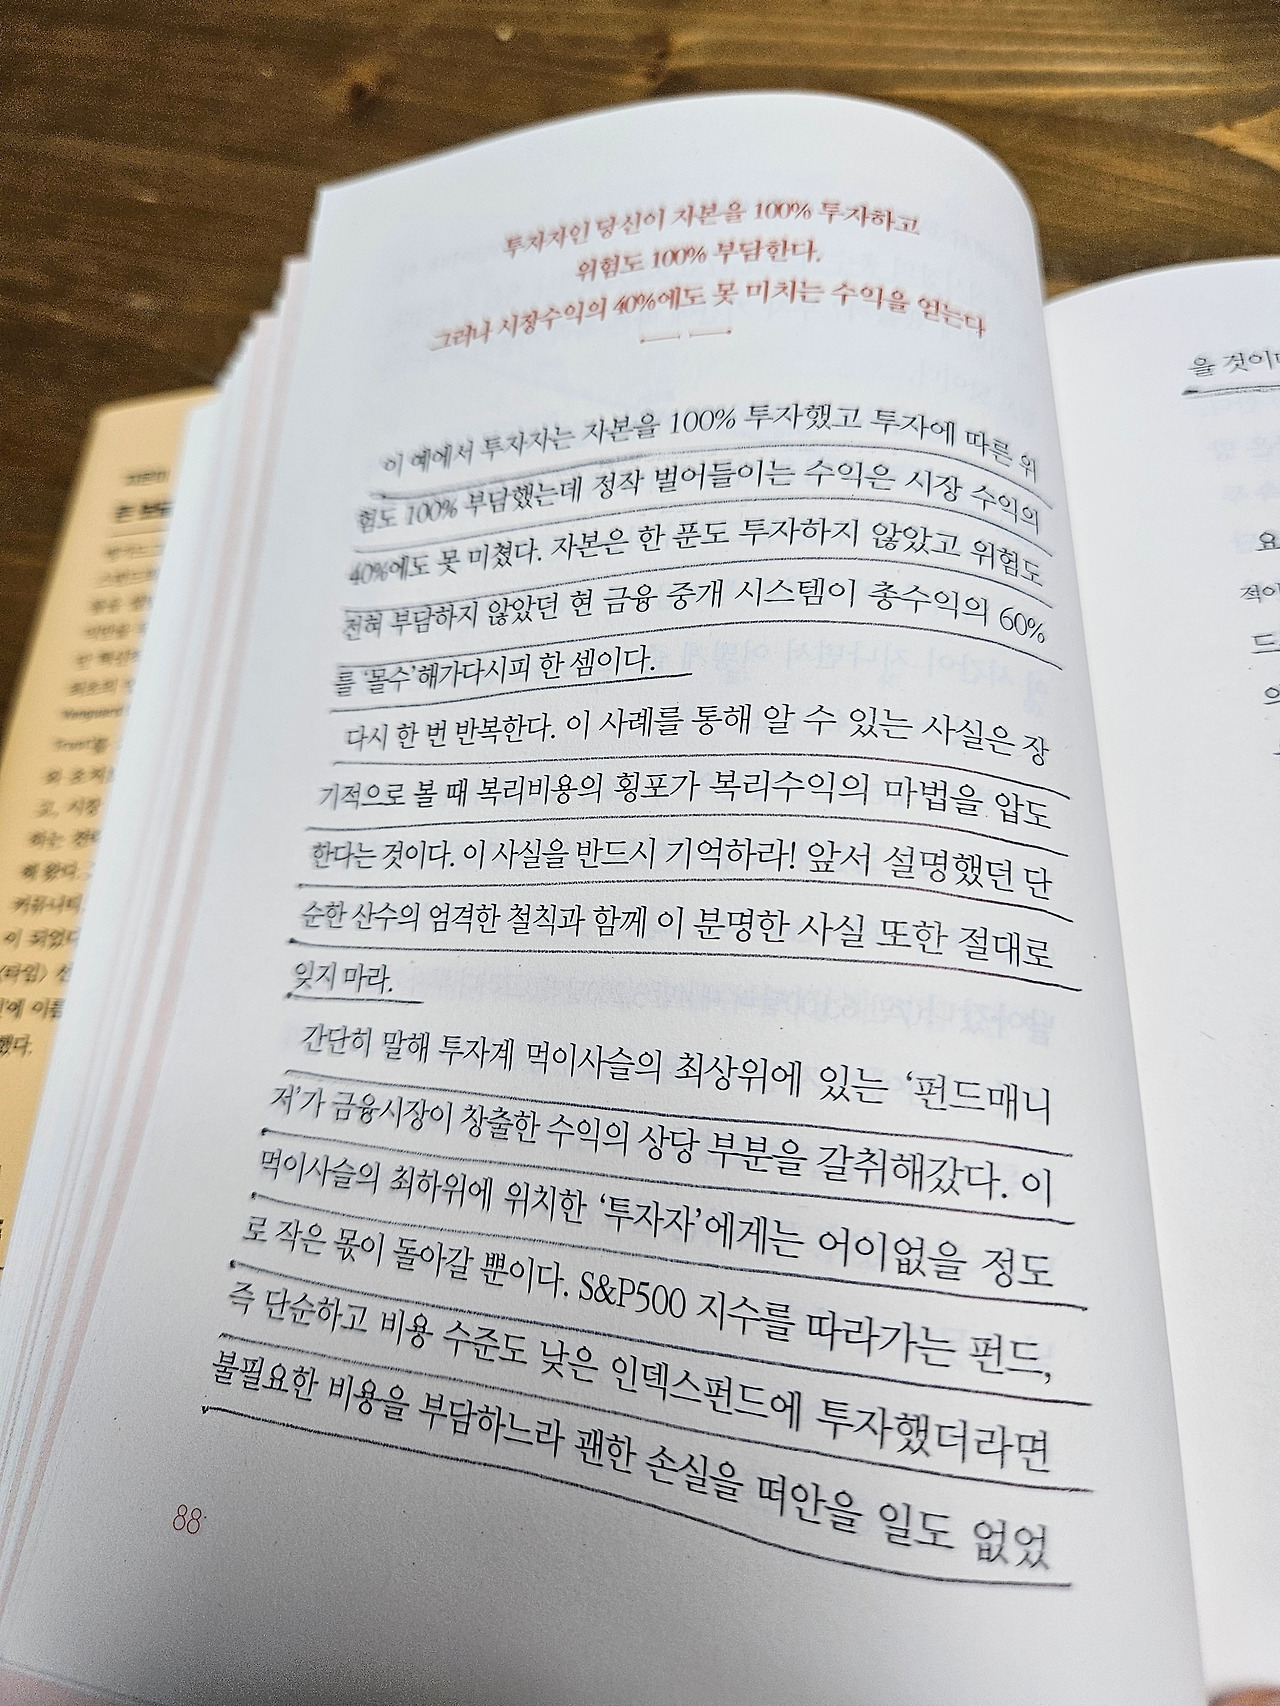 투자자인 당신이 자본을 100% 투자하고
위험도 100% 부담한다.
그러나 시장수익의 40%에도 못 미치는 수익을 얻는다
이 예에서 투자자는 자본을 100% 투자했고 투자에 따른 위
험도 100% 부담했는데 정작 벌어들이는 수익은 시장 수익의
40%에도 못 미쳤다. 자본은 한 푼도 투자하지 않았고 위험도
전혀 부담하지 않았던 현 금융 중개 시스템이 총수익의 60%
를 ‘몰수’해가다시피 한 셈이다.
다시 한 번 반복한다. 이 사례를 통해 알 수 있는 사실은 장
기적으로 볼 때 복리비용의 횡포가 복리수익의 마법을 압도
한다는 것이다. 이 사실을 반드시 기억하라! 앞서 설명했던 단
순한 산수의 엄격한 철칙과 함께 이 분명한 사실 또한 절대로
잊지 마라.
간단히 말해 투자계 먹이사슬의 최상위에 있는 ‘펀드매니
저’가 금융시장이 창출한 수익의 상당 부분을 갈취해갔다. 이
먹이사슬의 최하위에 위치한 ‘투자자’에게는 어이없을 정도
로 작은 몫이 돌아갈 뿐이다. S&P500 지수를 따라가는 펀드,
즉 단순하고 비용 수준도 낮은 인덱스펀드에 투자했더라면
불필요한 비용을 부담하느라 괜한 손실을 떠안을 일도 없었
88
을 것이
요
적이
드
Vanguard
고, 시장
하는 전
해 왔다.
커뮤니티
이 되었다
〈타임〉 선
에 이름
했다.